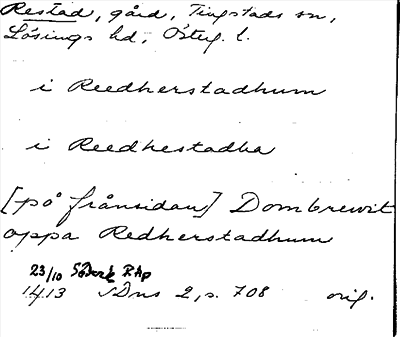 Restad, gård, Tingstads sn,
Lösings hd, Österg. l.
i Reedherstadhum
i Reedhestadha
[på frånsidan] Dombrewit
oppa Redherstadhum
23/10 Söderk Rkp
1413 SDns 2, s. 708 orig.